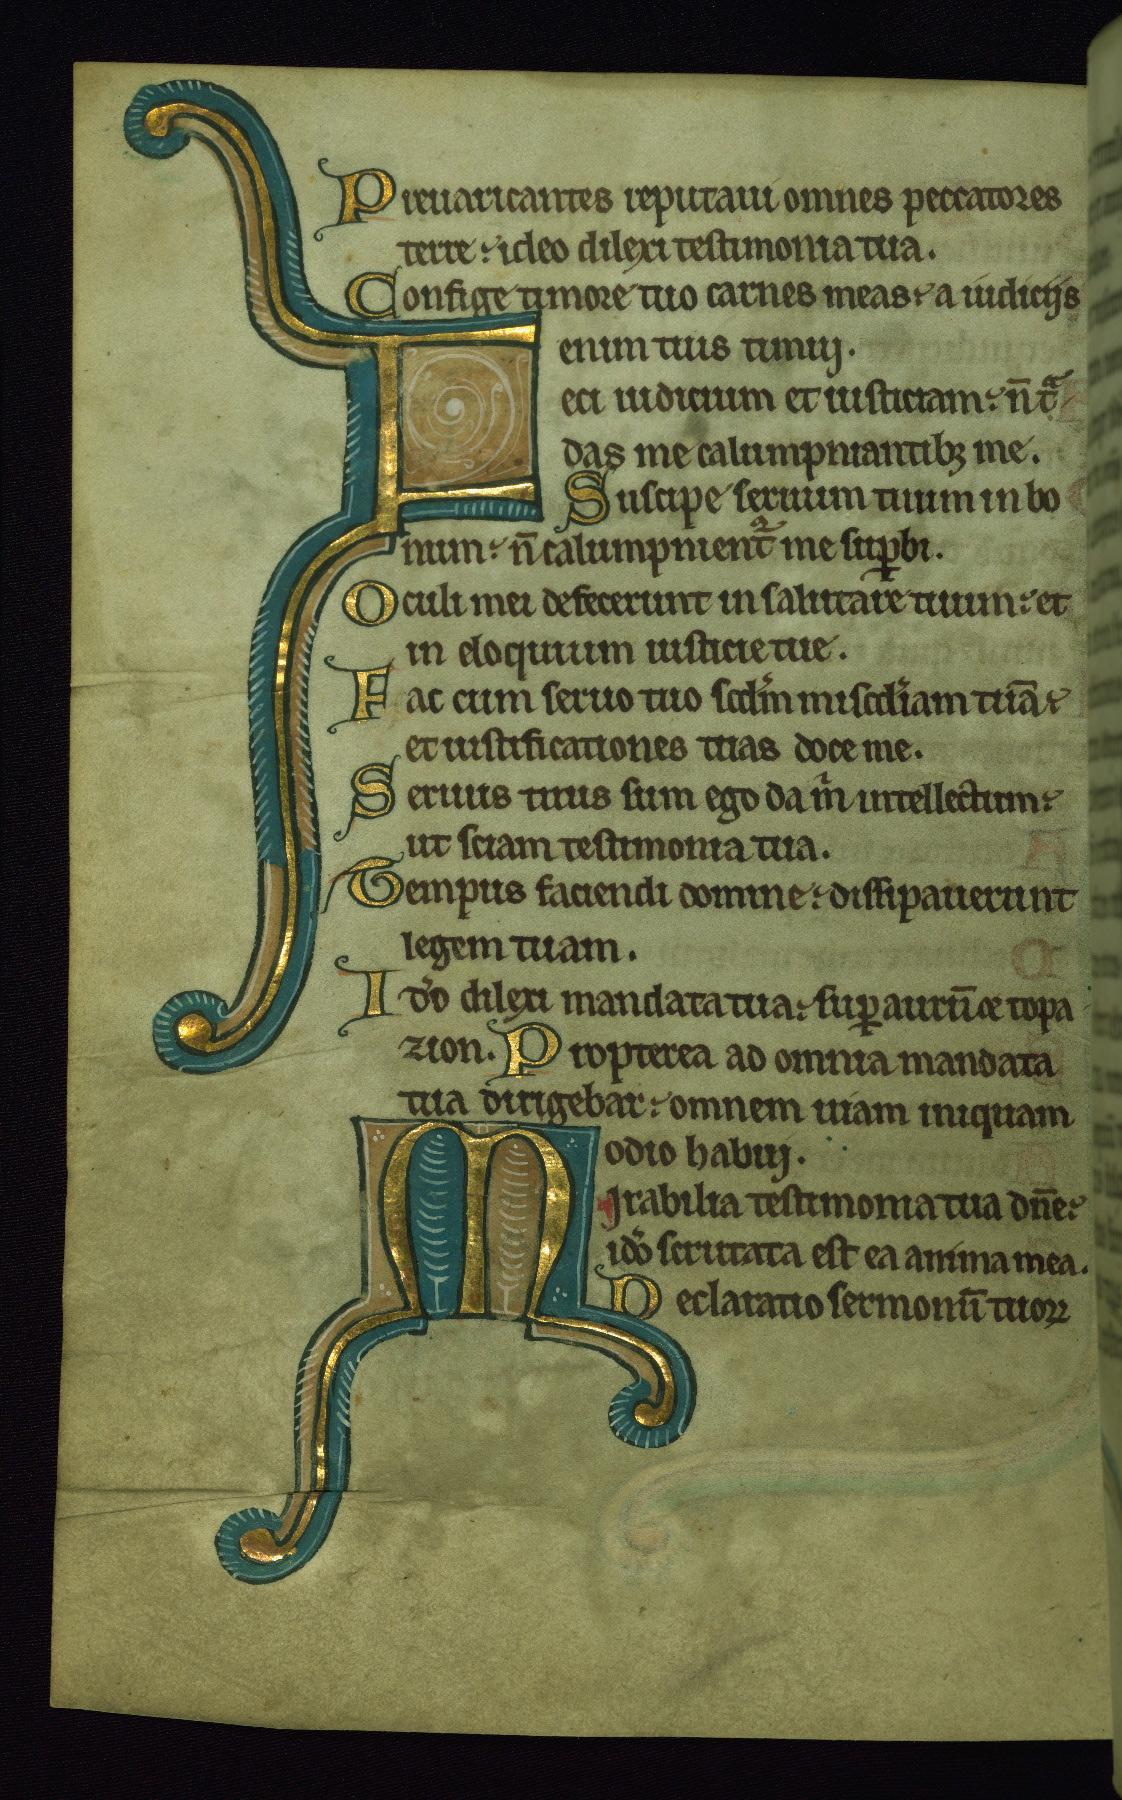 Preuaricantes reputaui omnes peccatores
terre: ideo dilexi testimonia tua.
Confige timore tuo carnes meas: a iudicijs
enim tuis timuj.
Feci iudicium et iusticiam: n̄ tͣ
das me calumpniantibꝫ me.
Suscipe seruum tuum in bo
num: n̄ calumpnient᷑ me suꝑbi.
Oculi mei defecerunt in salutare tuum: et
in eloquium iusticie tue.
Fac cum seruo tuo scdm̄ miscd̓iam tuā:
et iustificationes tuas doce me.
Seruus tuus sum ego da m̓ intellectum:
ut sciam testimonia tua.
Tempus faciendi domine: dissipauerunt
legem tuam.
Id̓o dilexi mandata tua: suꝑ aurū & topa
zion. Propterea ad omnia mandata
tua dirigebar: omnem uiam iniquam
odio habuj.
MJrabilia testimonia tua dn̄e:
id̓o scrutata est ea anima mea.
Declaratio sermonū tuoꝝ